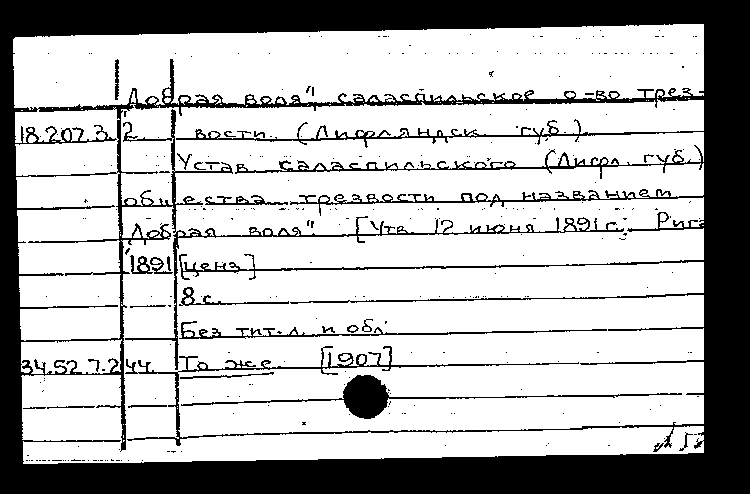 "Добрая воля", саласпильское о-во трез-
18.207.3.2. вости. (Лифляндск. губ.).
Устав саласпильского (Лифл. губ.)
общества трезвости под названием
"Добрая воля". [Утв. 12 июня 1891 г.. Рига
1891 [ценз]
8 с.
Без тит. л. и обл.
34.52.7.244. То же. [1907]